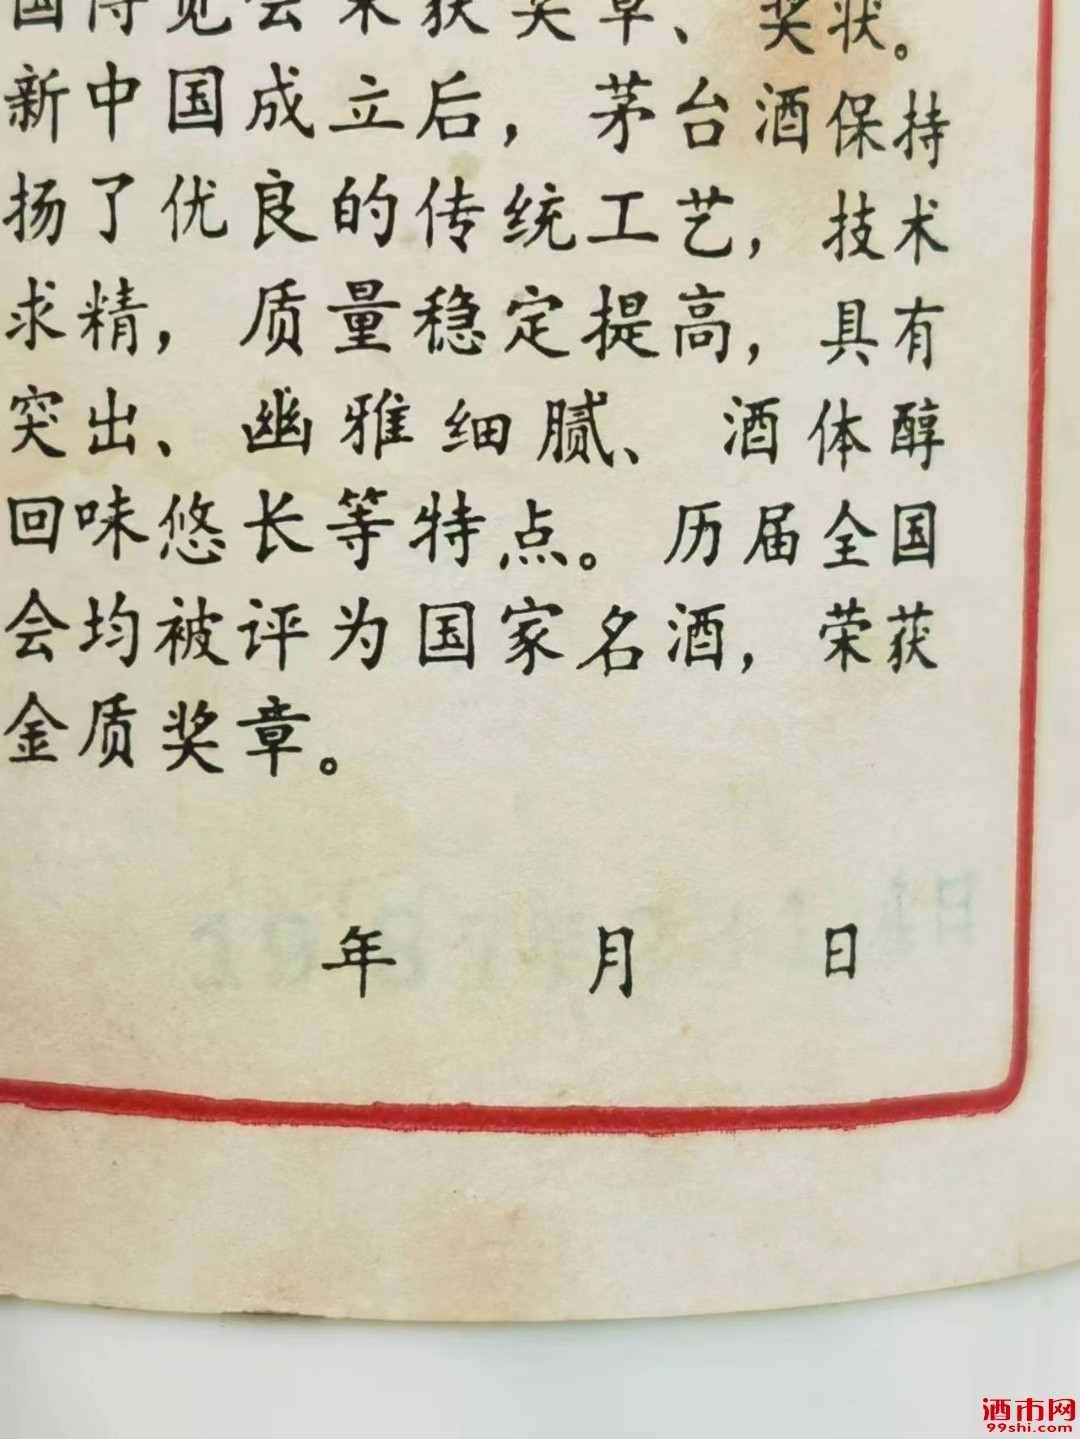 国博览会荣获奖章、奖状。
新中国成立后，茅台酒保持
扬了优良的传统工艺，技术
求精，质量稳定提高，具有
突出、幽雅细腻、酒体醇
回味悠长等特点。历届全国
会均被评为国家名酒，荣获
金质奖章。
年 月 日
酒市网
99shi.com